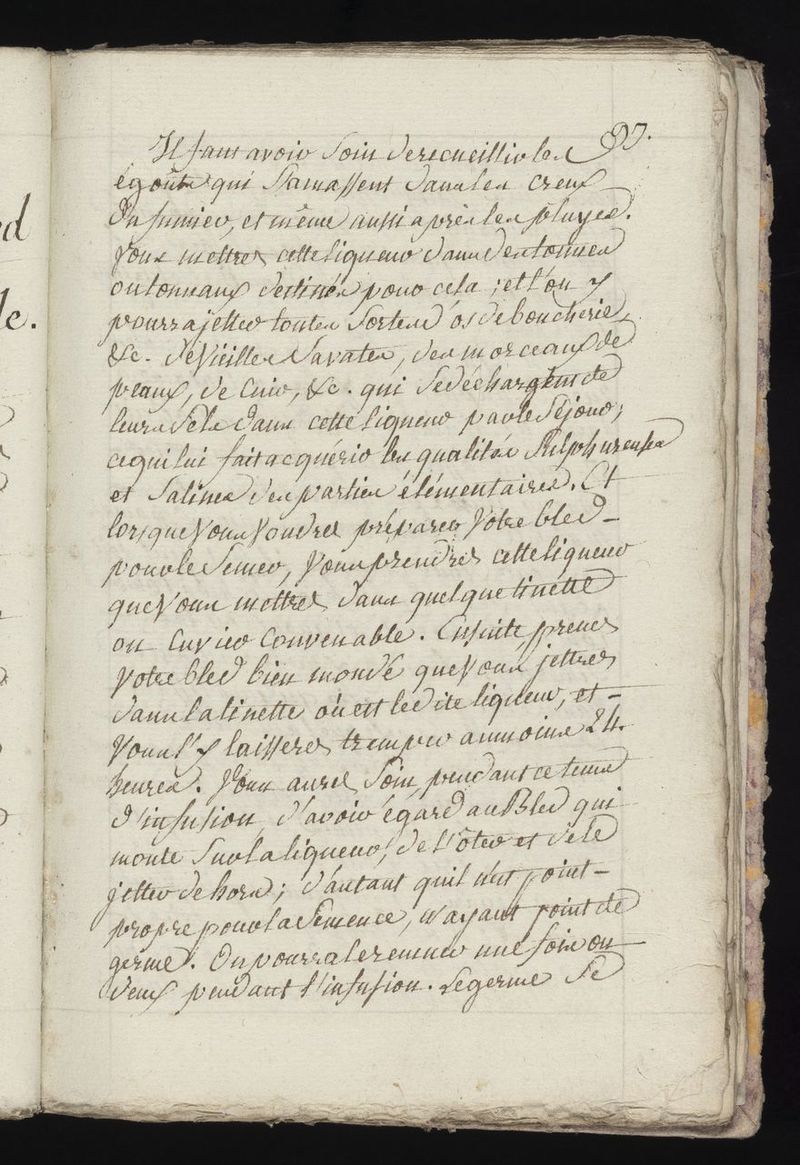 97.
Il faut avoir soin de recueillir les
égoûts qui s'amassent dans les creux
du fumier, et même aussi après les pluyes.
Vous mettrez cette liqueur dans des tonnes
ou tonneaux destinés pour cela ; et l'on y
pourra jetter toutes sortes d'os de boucherie,
&c. de vieilles savates, des morceaux de
peaux, de cuir, &c. qui se déchargent de
leurs sels dans cette liqueur par le séjour ;
ce qui lui fait acquérir les qualités sulphureuses
et salines des parties élémentaires. Et
lorsque vous voudrez préparer votre bled
pour le semer, vous prendrez cette liqueur
que vous mettrez dans quelque tinette
ou cuvier convenable. Ensuite prenez
votre bled bien mondé que vous jettrez
dans la tinette où est ledite liqueur, et
vous l'y laisserez tremper au moins 24.
heures. Vous aurez soin, pendant ce tems
d'infusion, d'avoir égard au Bled qui
monte sur la liqueur, de l'ôter et de le
jetter dehors ; d'autant qu'il n'est point
propre pour la semence, n'ayant point de
germe. On pourra le remuer une fois ou
deux pendant l'infusion. Le germe se
ed
le.